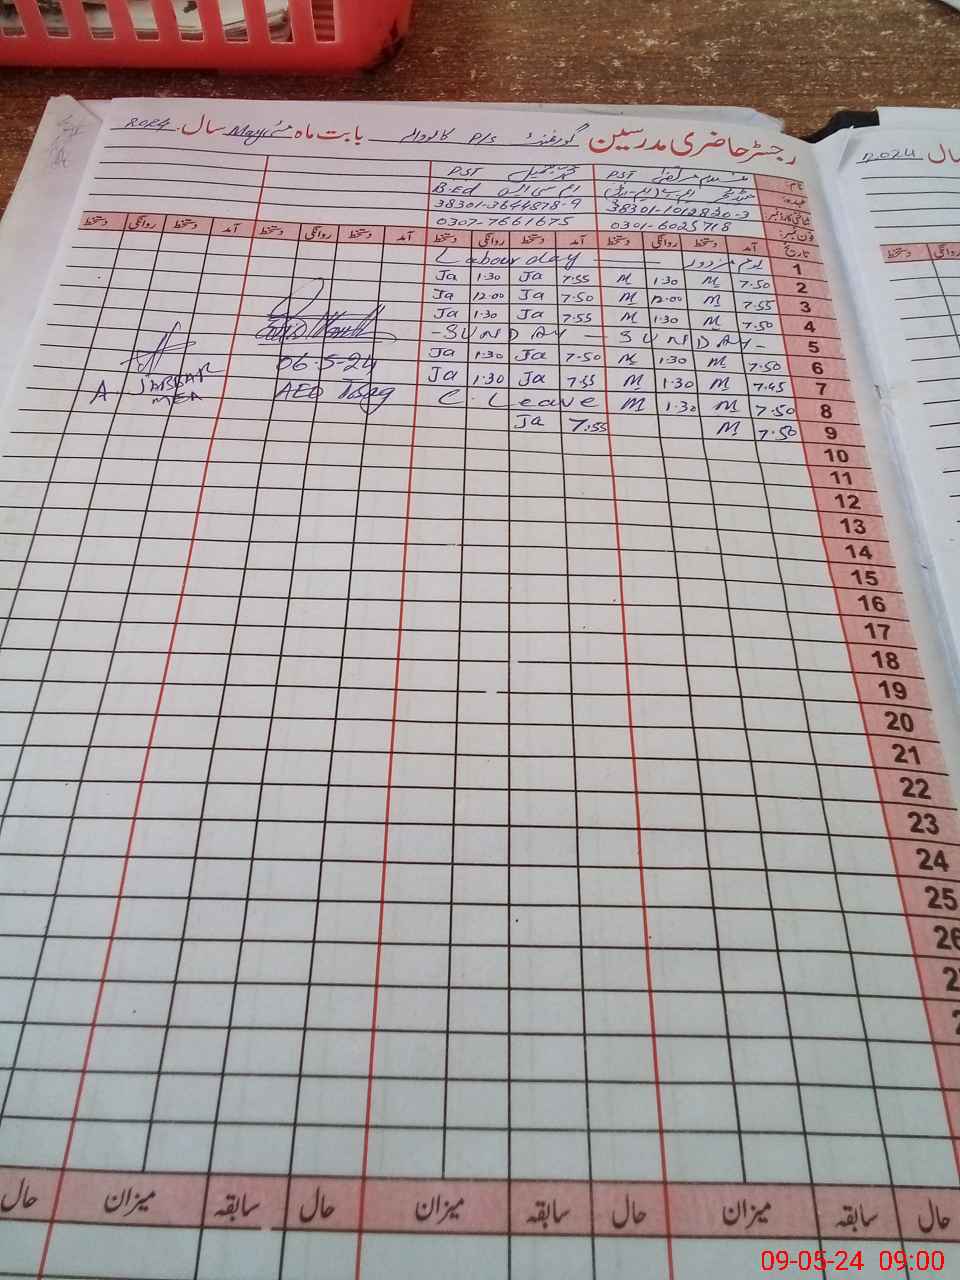 رجسٹر حاضری مدرسین گورنمنٹ P/S بابت ماہ مئی May سال 2024
نام: PST PST
عہدہ: B.Ed
38301-1012830-3 38301-2644878-9
فون نمبر: 0301-6025718 0307-7661675
تاریخ آمد دستخط روانگی دستخط آمد دستخط روانگی دستخط آمد دستخط روانگی دستخط آمد دستخط روانگی دستخط
1 یوم مزدور Labour day
2 7.50 M 1.30 M 7.55 Ja 1.30 Ja
3 7.55 M 12.00 M 7.50 Ja 12.00 Ja
4 7.50 M 1.30 M 7.55 Ja 1.30 Ja
5 - SUNDAY - SUNDAY -
6 7.50 M 1.30 M 7.50 Ja 1.30 Ja 06-5-24
7 7.45 M 1.30 M 7.55 Ja 1.30 Ja A. JABBAR
8 7.50 M 1.30 M C. Leave AEO MEA
9 7.50 M 7.55 Ja
10
11
12
13
14
15
16
17
18
19
20
21
22
23
24
25
26
حال سابقہ میزان حال سابقہ میزان حال سابقہ میزان حال
2024 سال
دستخط روانگی
09-05-24 09:00